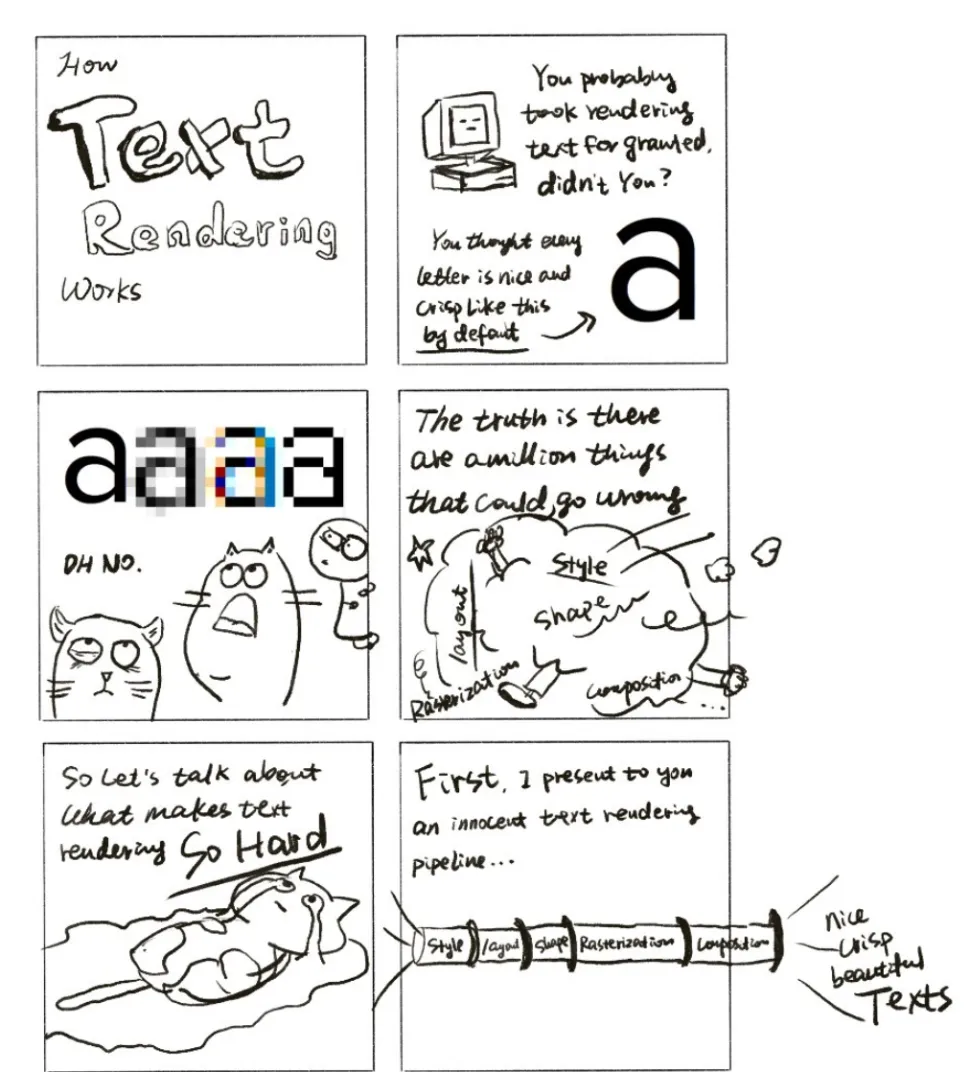 How
Text
Rendering
Works
You probably
took rendering
text for granted,
didn't You?
You thought every
letter is nice and
crisp like this
by default
a
aaaa
OH NO.
The truth is there
are a million things
that could go wrong
Style
Shape
layout
Rasterization
Composition
...
So Let's talk about
what makes text
rendering So Hard
First, I present to you
an innocent text rendering
pipeline...
Style layout Shape Rasterization Composition
nice
crisp
beautiful
Texts